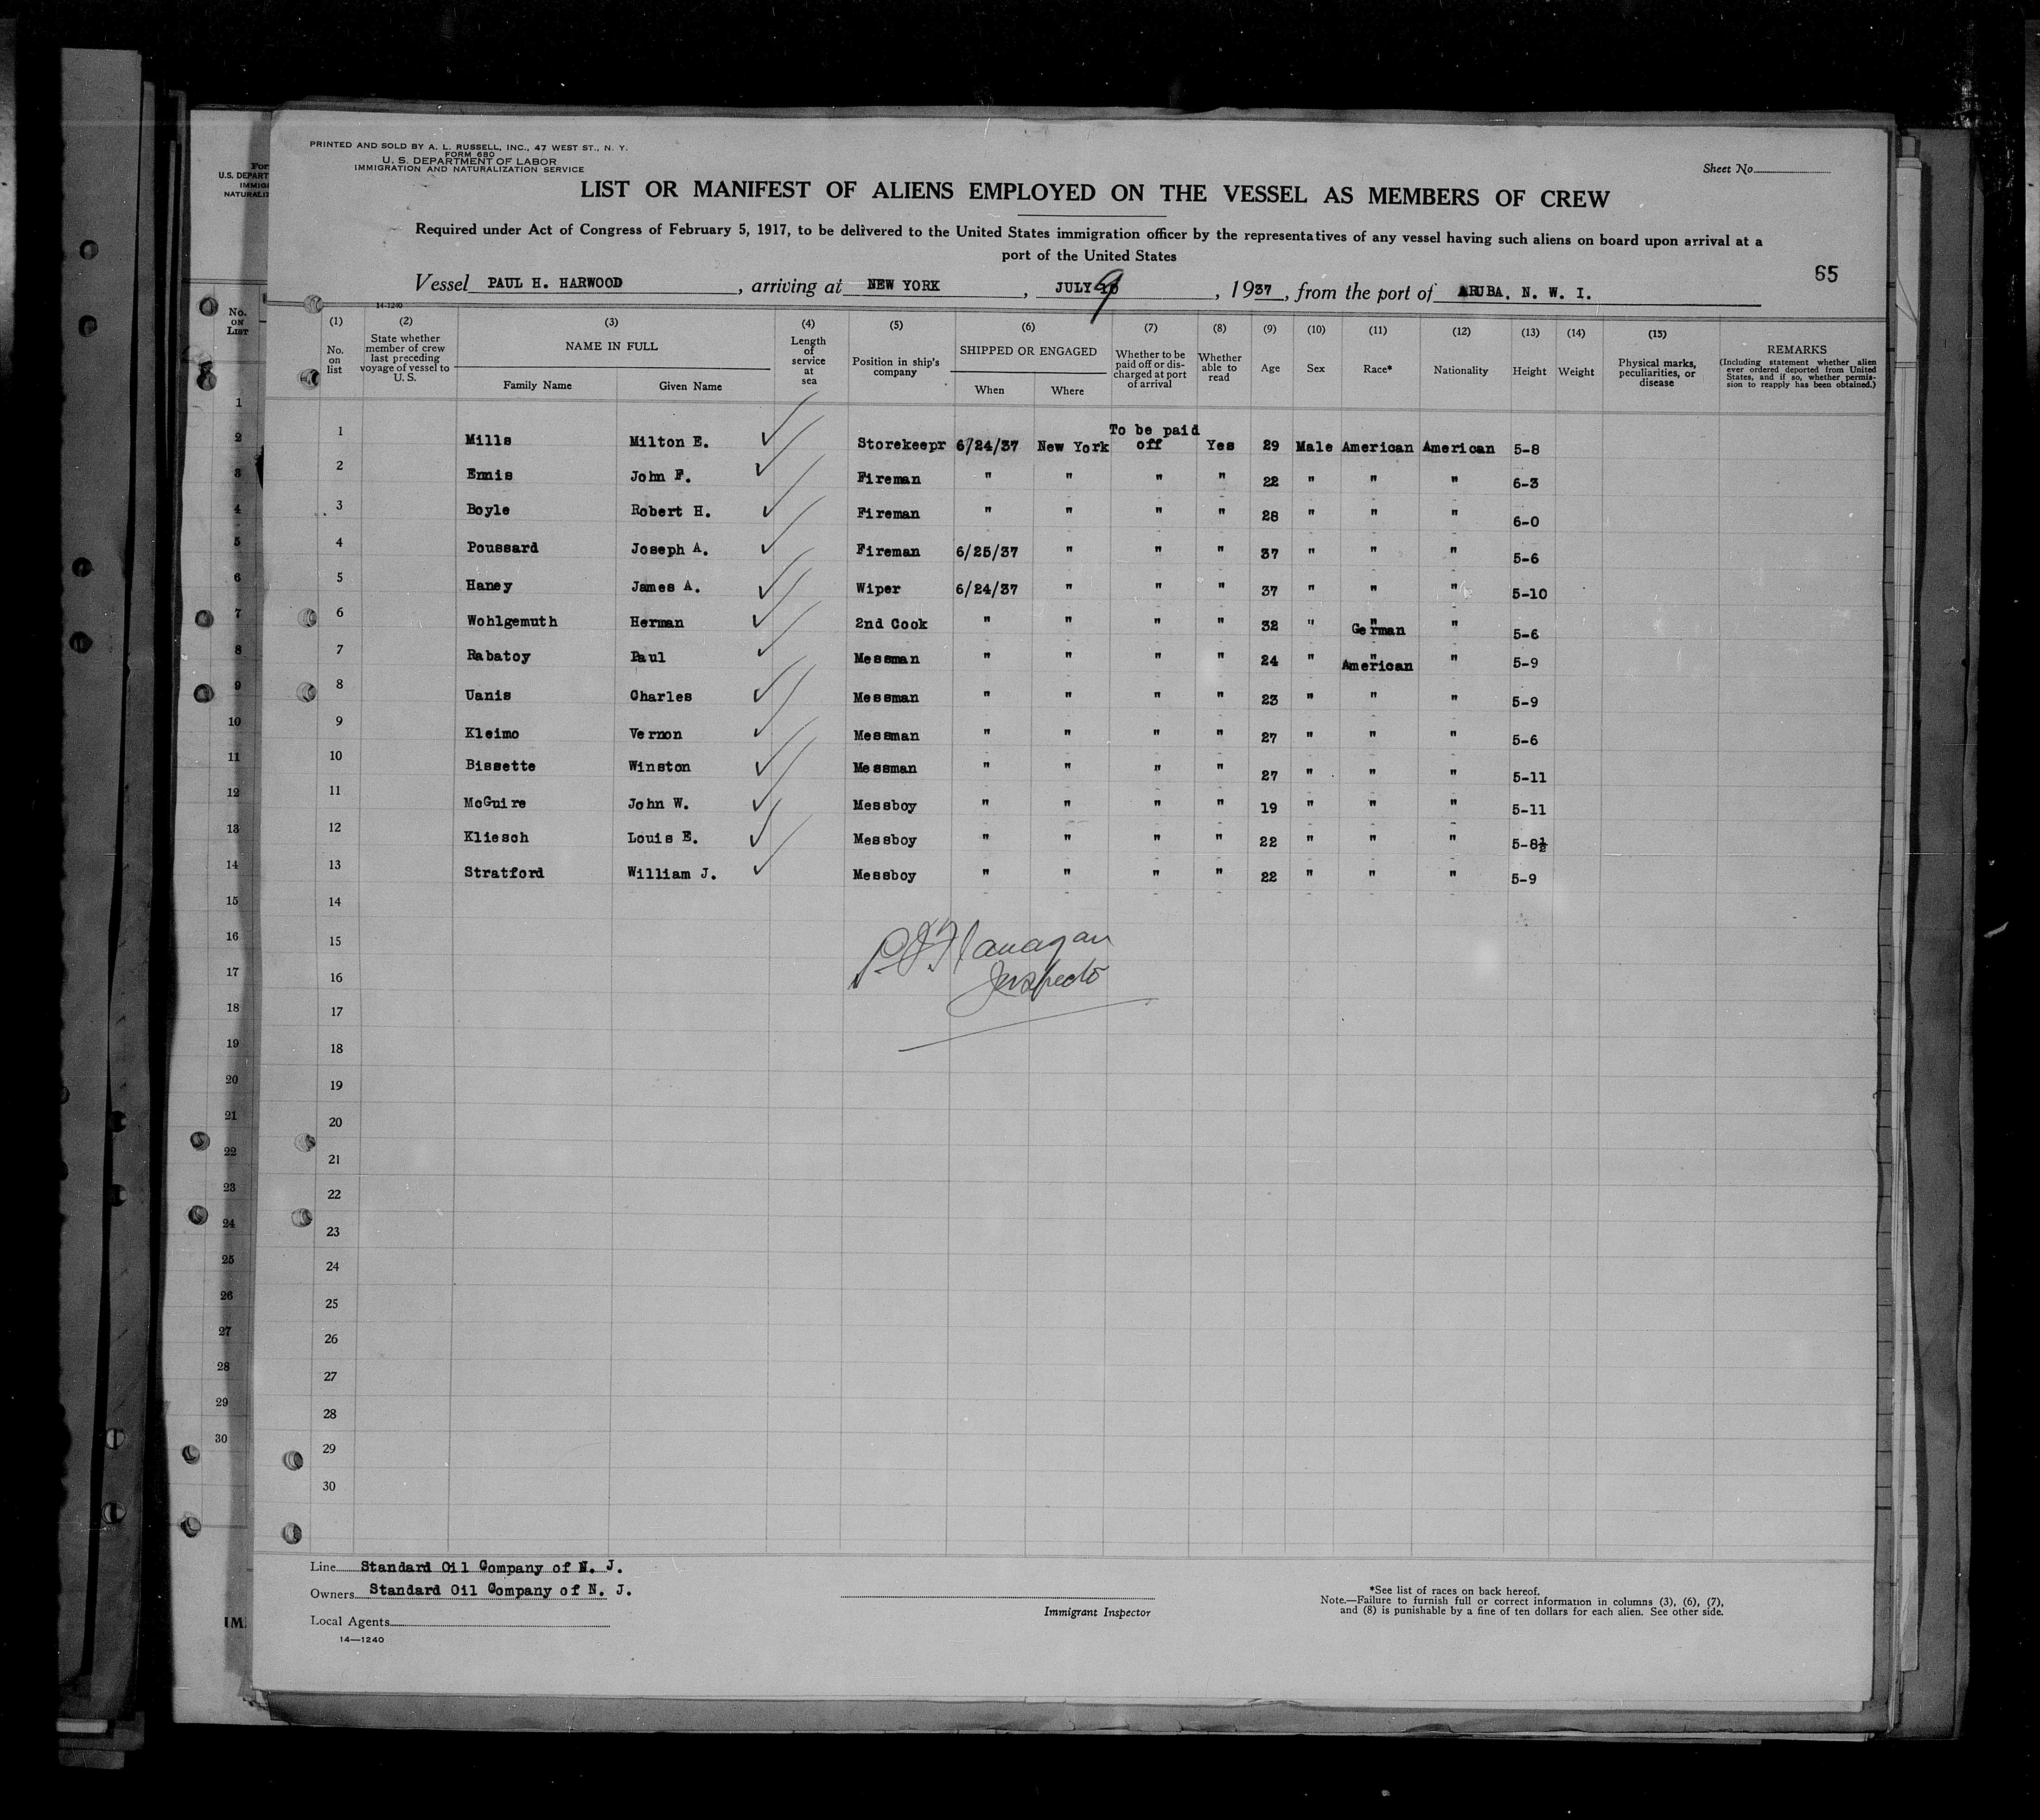 PRINTED AND SOLD BY A. L. RUSSELL, INC., 47 WEST ST., N. Y.
FORM 680
U. S. DEPARTMENT OF LABOR
IMMIGRATION AND NATURALIZATION SERVICE
Sheet No.
LIST OR MANIFEST OF ALIENS EMPLOYED ON THE VESSEL AS MEMBERS OF CREW
Required under Act of Congress of February 5, 1917, to be delivered to the United States immigration officer by the representatives of any vessel having such aliens on board upon arrival at a
port of the United States
65
Vessel PAUL H. HARWOOD, arriving at NEW YORK, JULY 9, 1937, from the port of ARUBA, N. W. I.
14-1240
(1) (2) (3) (4) (5) (6) (7) (8) (9) (10) (11) (12) (13) (14) (15)
No. on list
State whether member of crew last preceding voyage of vessel to U. S.
NAME IN FULL
Family Name Given Name
Length of service at sea
Position in ship's company
SHIPPED OR ENGAGED
When Where
Whether to be paid off or discharged at port of arrival
Whether able to read
Age Sex Race* Nationality Height Weight
Physical marks, peculiarities, or disease
REMARKS
(Including statement whether alien ever ordered deported from United States, and if so, whether permission to reapply has been obtained.)
1 Mills Milton E. Storekeepr 6/24/37 New York To be paid off Yes 29 Male American American 5-8
2 Ennis John F. Fireman " " " " 22 " " " 6-3
3 Boyle Robert H. Fireman " " " " 28 " " " 6-0
4 Poussard Joseph A. Fireman 6/25/37 " " " 37 " " " 5-6
5 Haney James A. Wiper 6/24/37 " " " 37 " " " 5-10
6 Wohlgemuth Herman 2nd Cook " " " " 32 " German " 5-6
7 Rabatoy Paul Messman " " " " 24 " American " 5-9
8 Uanis Charles Messman " " " " 23 " " " 5-9
9 Kleimo Vernon Messman " " " " 27 " " " 5-6
10 Bissette Winston Messman " " " " 27 " " " 5-11
11 McGuire John W. Messboy " " " " 19 " " " 5-11
12 Kliesch Louis E. Messboy " " " " 22 " " " 5-8½
13 Stratford William J. Messboy " " " " 22 " " " 5-9
14
15
16
17
18
19
20
21
22
23
24
25
26
27
28
29
30
Flanagan
Inspector
Line Standard Oil Company of N. J.
Owners Standard Oil Company of N. J.
Local Agents
14—1240
Immigrant Inspector
*See list of races on back hereof.
Note.—Failure to furnish full or correct information in columns (3), (6), (7),
and (8) is punishable by a fine of ten dollars for each alien. See other side.